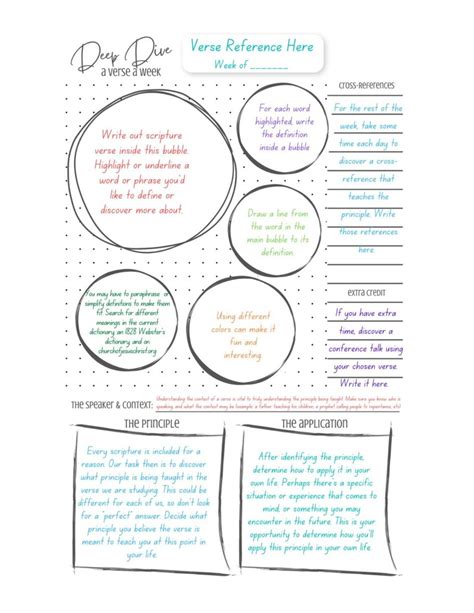 Deep Dive
a verse a week
Verse Reference Here
Week of _______
Cross-References
Write out scripture
verse inside this bubble.
Highlight or underline a
word or phrase you'd
like to define or
discover more about.
For each word
highlighted, write
the definition
inside a bubble
For the rest of the
week, take some
time each day to
discover a cross-
reference that
teaches the
principle. Write
those references
here.
Draw a line from
the word in the
main bubble to its
definition.
You may have to paraphrase or
simplify definitions to make them
fit. Search for different
meanings in the current
dictionary, an 1828 Webster's
dictionary, and on
churchofjesuschrist.org
Using different
colors can make it
fun and
interesting.
Extra Credit
If you have extra
time, discover a
conference talk using
your chosen verse.
Write it here.
The Speaker & Context:
Understanding the context of a verse is vital to truly understanding the principle being taught. Make sure you know who is
speaking, and what the context may be (example: a father teaching his children, a prophet calling people to repentance, etc)
The Principle
Every scripture is included for a
reason. Our task then is to discover
what principle is being taught in the
verse we are studying. This could be
different for each of us, so don't look
for a "perfect" answer. Decide what
principle you believe the verse is
meant to teach you at this point in
your life.
The Application
After identifying the principle,
determine how to apply it in your
own life. Perhaps there's a specific
situation or experience that comes to
mind, or something you may
encounter in the future. This is your
opportunity to determine how you'll
apply this principle in your own life.